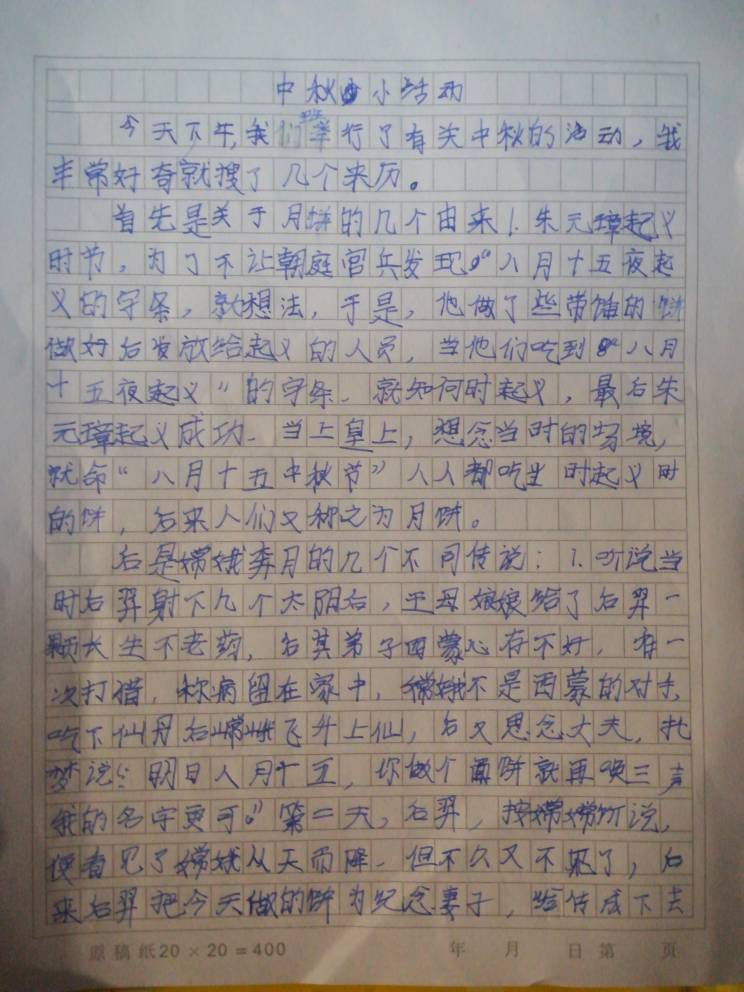 中秋小活动
今天下午,我们举行了有关中秋的活动,我
非常好奇就搜了几个来历。
首先是关于月饼的几个由来1.朱元璋起义
时节,为了不让朝庭官兵发现“八月十五夜起
义的字条,就想法,于是,他做了些带馅的饼
做好后发放给起义的人员,当他们吃到“八月
十五夜起义”的字条、就知何时起义,最后朱
元璋起义成功、当上皇上,想念当时的场境,
就命“八月十五中秋节”人人都吃当时起义时
的饼,后来人们又称之为月饼。
后是嫦娥奔月的几个不同传说:1.听说当
时后羿射下几个太阳后,王母娘娘给了后羿一
颗长生不老药,后其弟子西蒙心存不好,有一
次打猎,称病留在家中,嫦娥不是西蒙的对手,
吃下仙丹后嫦娥飞升上仙,后又思念丈夫,托
梦说:明日八月十五,你做个圆饼就再唤三声
我的名字更可。”第二天,后羿,按嫦嫦所说,
便看见了嫦娥从天而降、但不久又不见了,后
来后羿把今天做的饼为纪念妻子,给传成下去
原稿纸20×20=400 年 月 日 第 页